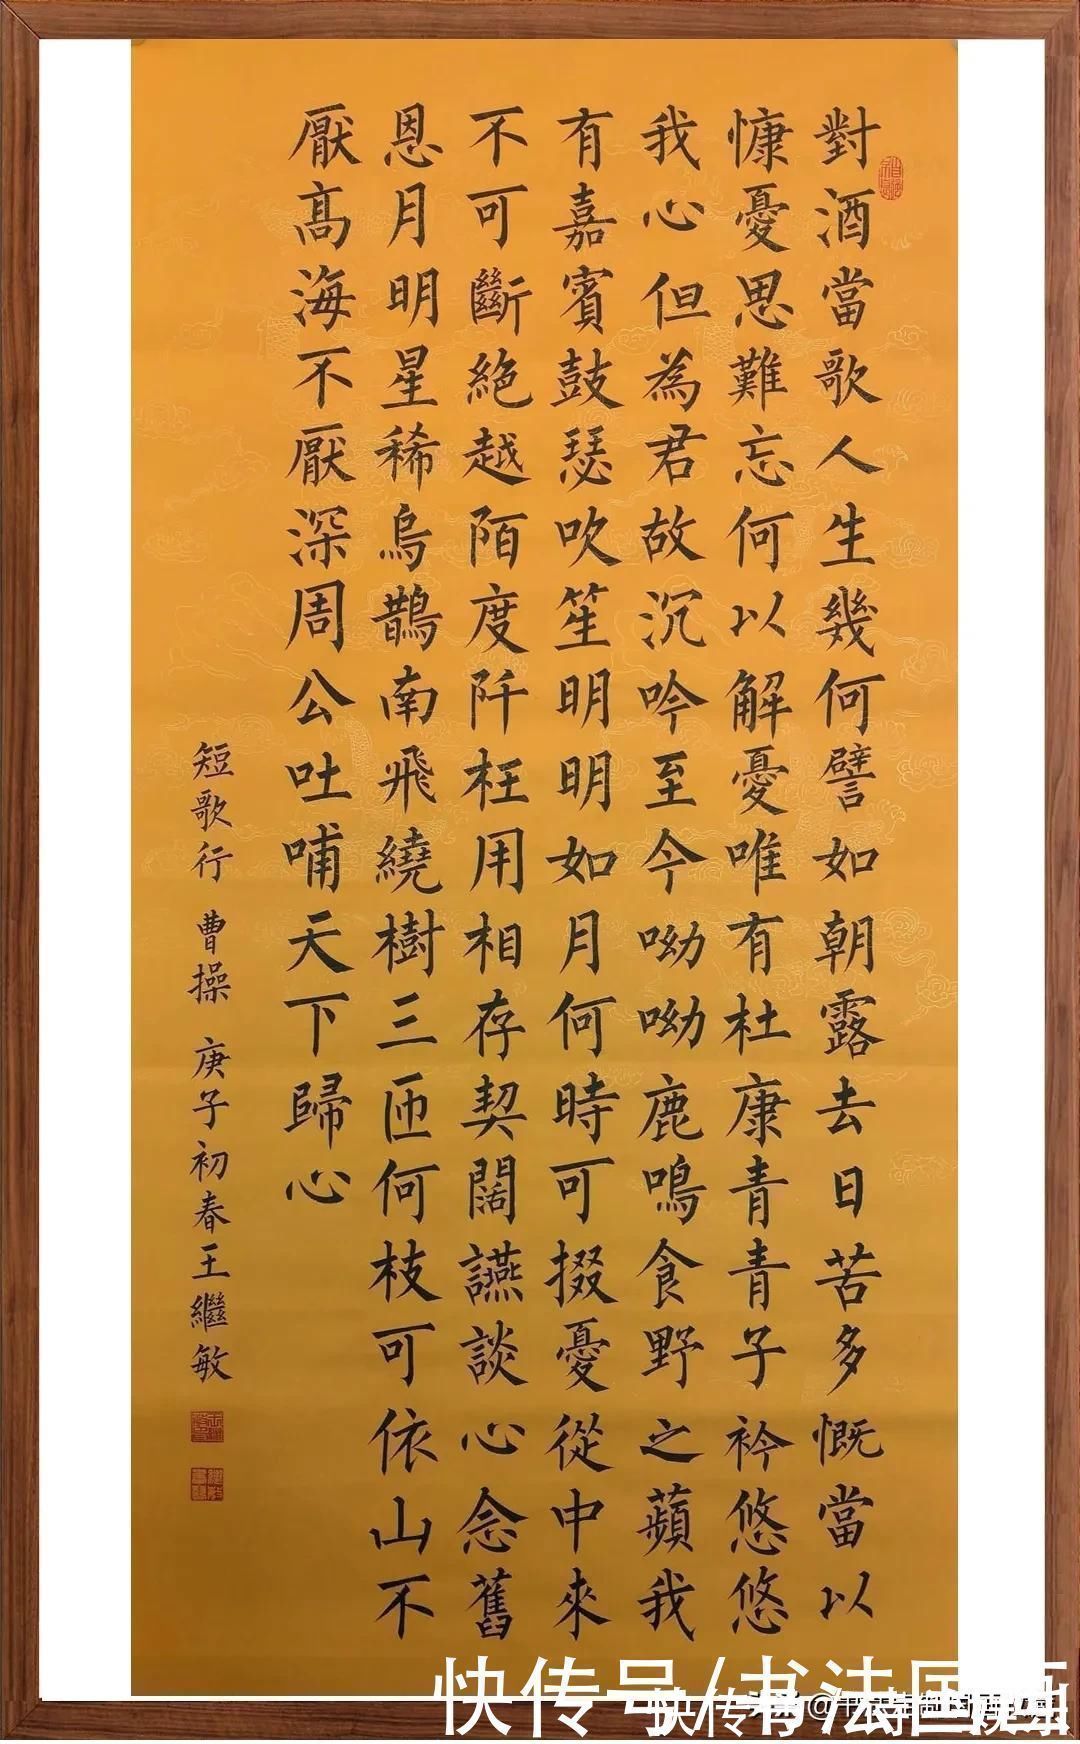 對酒當歌人生幾何譬如朝露去日苦多慨當以
慷憂思難忘何以解憂唯有杜康青青子衿悠悠
我心但為君故沉吟至今呦呦鹿鳴食野之蘋我
有嘉賓鼓瑟吹笙明明如月何時可掇憂從中來
不可斷絶越陌度阡枉用相存契闊讌談心念舊
恩月明星稀烏鵲南飛繞樹三匝何枝可依山不
厭髙海不厭深周公吐哺天下歸心
短歌行 曹操 庚子初春王繼敏
快传号/书法国画